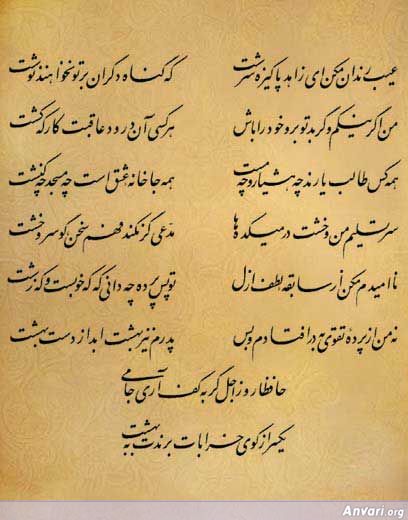 عیب رندان مکن ای زاهد پاکیزه سرشت که گناه دگران بر تو نخواهند نوشت
من اگر نیکم و گر بد تو برو خود را باش هر کسی آن درود عاقبت کار که کشت
همه کس طالب یارند چه هشیار و چه مست همه جا خانه عشق است چه مسجد چه کنشت
سر تسلیم من و خشت در میکده‌ها مدعی گر نکند فهم سخن گو سر و خشت
ناامیدم مکن از سابقه لطف ازل تو پس پرده چه دانی که که خوبست و که زشت
نه من از پرده تقوی به در افتادم و بس پدرم نیز بهشت ابد از دست بهشت
حافظا روز اجل گر به کف آری جامی
یکسر از کوی خرابات برندت به بهشت
Anvari.org